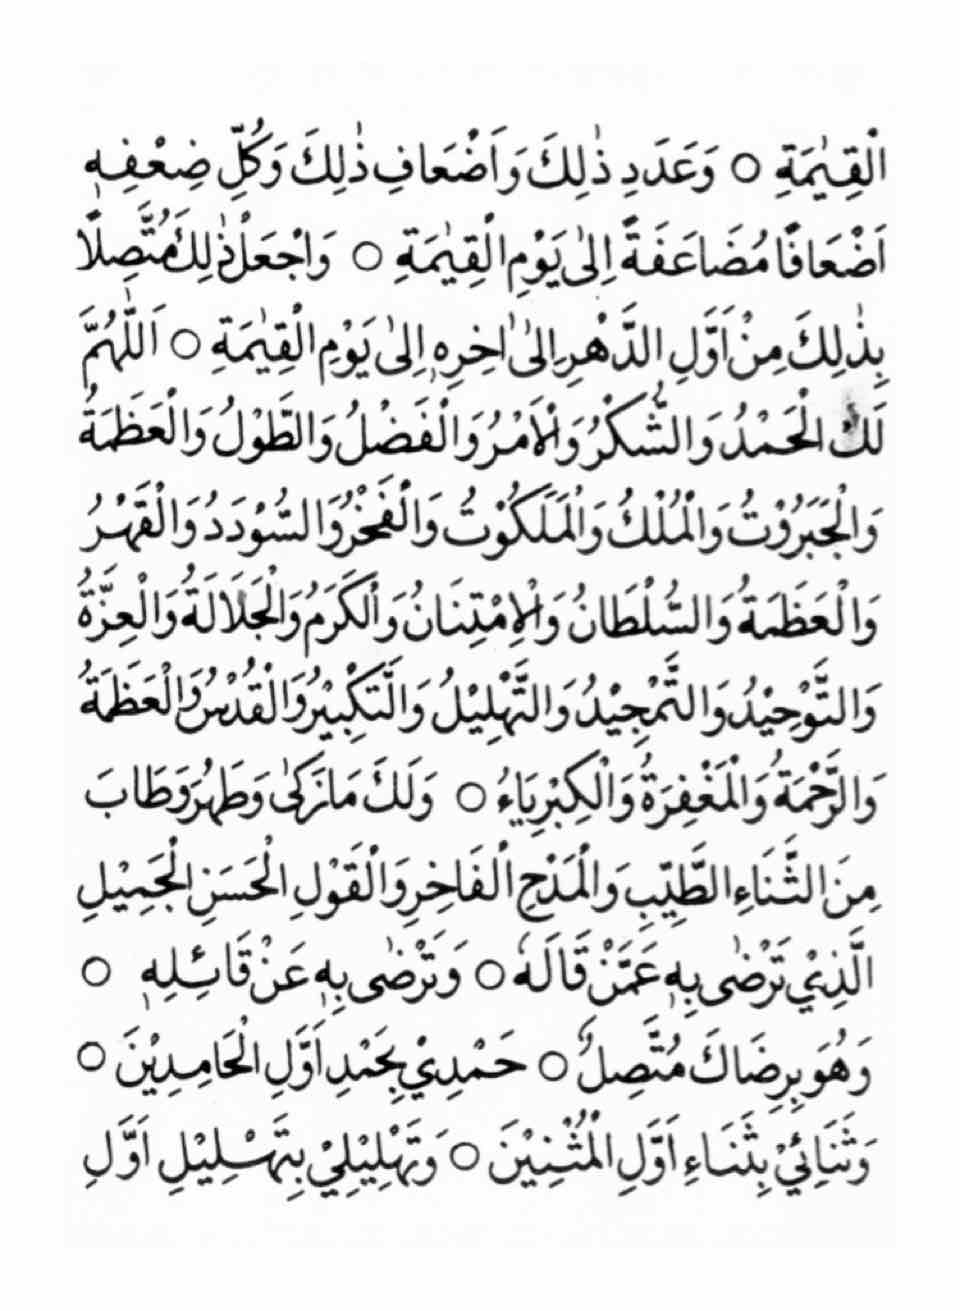 الْقِيٰمَةِ ○ وَعَدَدِ ذٰلِكَ وَاَضْعَافِ ذٰلِكَ وَكُلِّ ضِعْفِهٖ
اَضْعَافًا مُضَاعَفَةً اِلٰى يَوْمِ الْقِيٰمَةِ ○ وَاجْعَلْ ذٰلِكَ مُتَّصِلًا
بِذٰلِكَ مِنْ اَوَّلِ الدَّهْرِ اِلٰى اٰخِرِهٖ اِلٰى يَوْمِ الْقِيٰمَةِ ○ اَللّٰهُمَّ
لَكَ الْحَمْدُ وَالشُّكْرُ وَالْاَمْرُ وَالْفَضْلُ وَالطَّوْلُ وَالْعَظَمَةُ
وَالْجَبَرُوْتُ وَالْمُلْكُ وَالْمَلَكُوْتُ وَالْفَخْرُ وَالسُّوْدَدُ وَالْقَهْرُ
وَالْعَظَمَةُ وَالسُّلْطَانُ وَالْاِمْتِنَانُ وَالْكَرَمُ وَالْجَلَالَةُ وَالْعِزَّةُ
وَالتَّوْحِيْدُ وَالتَّمْجِيْدُ وَالتَّهْلِيْلُ وَالتَّكْبِيْرُ وَالْقُدْسُ وَالْعَظَمَةُ
وَالرَّحْمَةُ وَالْمَغْفِرَةُ وَالْكِبْرِيَاءُ ○ وَلَكَ مَا زَكٰى وَطَهُرَ وَطَابَ
مِنَ الثَّنَاءِ الطَّيِّبِ وَالْمَدْحِ الْفَاخِرِ وَالْقَوْلِ الْحَسَنِ الْجَمِيْلِ
الَّذِيْ تَرْضٰى بِهٖ عَمَّنْ قَالَهٗ ○ وَتَرْضٰى بِهٖ عَنْ قَائِلِهٖ ○
وَهُوَ بِرِضَاكَ مُتَّصِلٌ ○ حَمْدِيْ بِحَمْدِ اَوَّلِ الْحَامِدِيْنَ ○
وَثَنَائِيْ بِثَنَاءِ اَوَّلِ الْمُثْنِيْنَ ○ وَتَهْلِيْلِيْ بِتَهْلِيْلِ اَوَّلِ